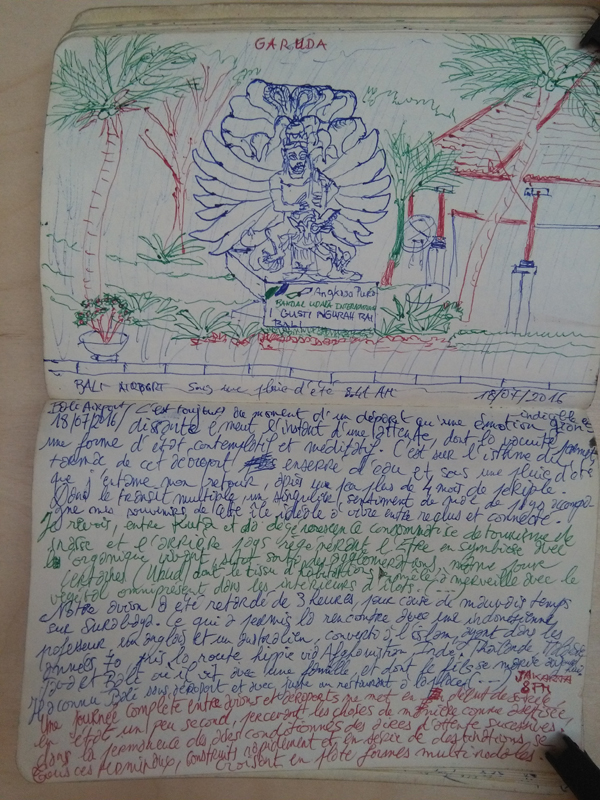 GARUDA
Angkasa Pura
BANDAR UDARA INTERNATIONAL
I GUSTI NGURAH RAI
BALI
BALI AIRPORT Sous une pluie d'été 8.41 AM 18/07/2016
Bali Airport / C'est toujours au moment d'un départ qu'une émotion indicible
18/07/2016 / distante émeut l'instant d'une attente, dont la vacuité
une forme d'état contemplatif et méditatif. C'est sur l'isthme du
tarmac de cet aéroport enserré d'eau et sous une pluie d'été
que j'entame mon retour, après un peu plus de 4 mois de périple.
Dans le transit multiple, un singulier sentiment de
mes souvenirs de l'autre à vivre entre reclus et connecté.
Je revois, entre Kuta et sa dégénérescence consommatrice de tourisme de
masse et l'arrière pays régénérant l'Être en symbiose avec
organique vivant, autour des agglomérations, même pour
certaines (Ubud) dont le tissu à merveille avec le
végétal omniprésent dans les intérieurs d'îlots. - - -
Notre avion a été retardé de 3 heures, pour cause de mauvais temps
sur Surabaya. Ce qui a permis la rencontre avec une indonésienne,
professeur en anglais et un australien, converti à l'Islam, ayant dans les
années 70 pris la route hippie via Afghanistan Inde Thaïlande
Java et Bali où il vit avec une famille, et dont le fils se marie
Il a connu Bali sans aéroport et avec juste un restaurant à la place! ... JAKARTA
8PM
Une journée complète entre avions et aéroports me met en début de soirée
en état un peu second, percevant les choses de manière comme
dans la permanence des airs conditionnés des aires d'attente successives,
Tous ces terminaux, construits rapidement et en série de destinations, se
croisent en plate formes multi